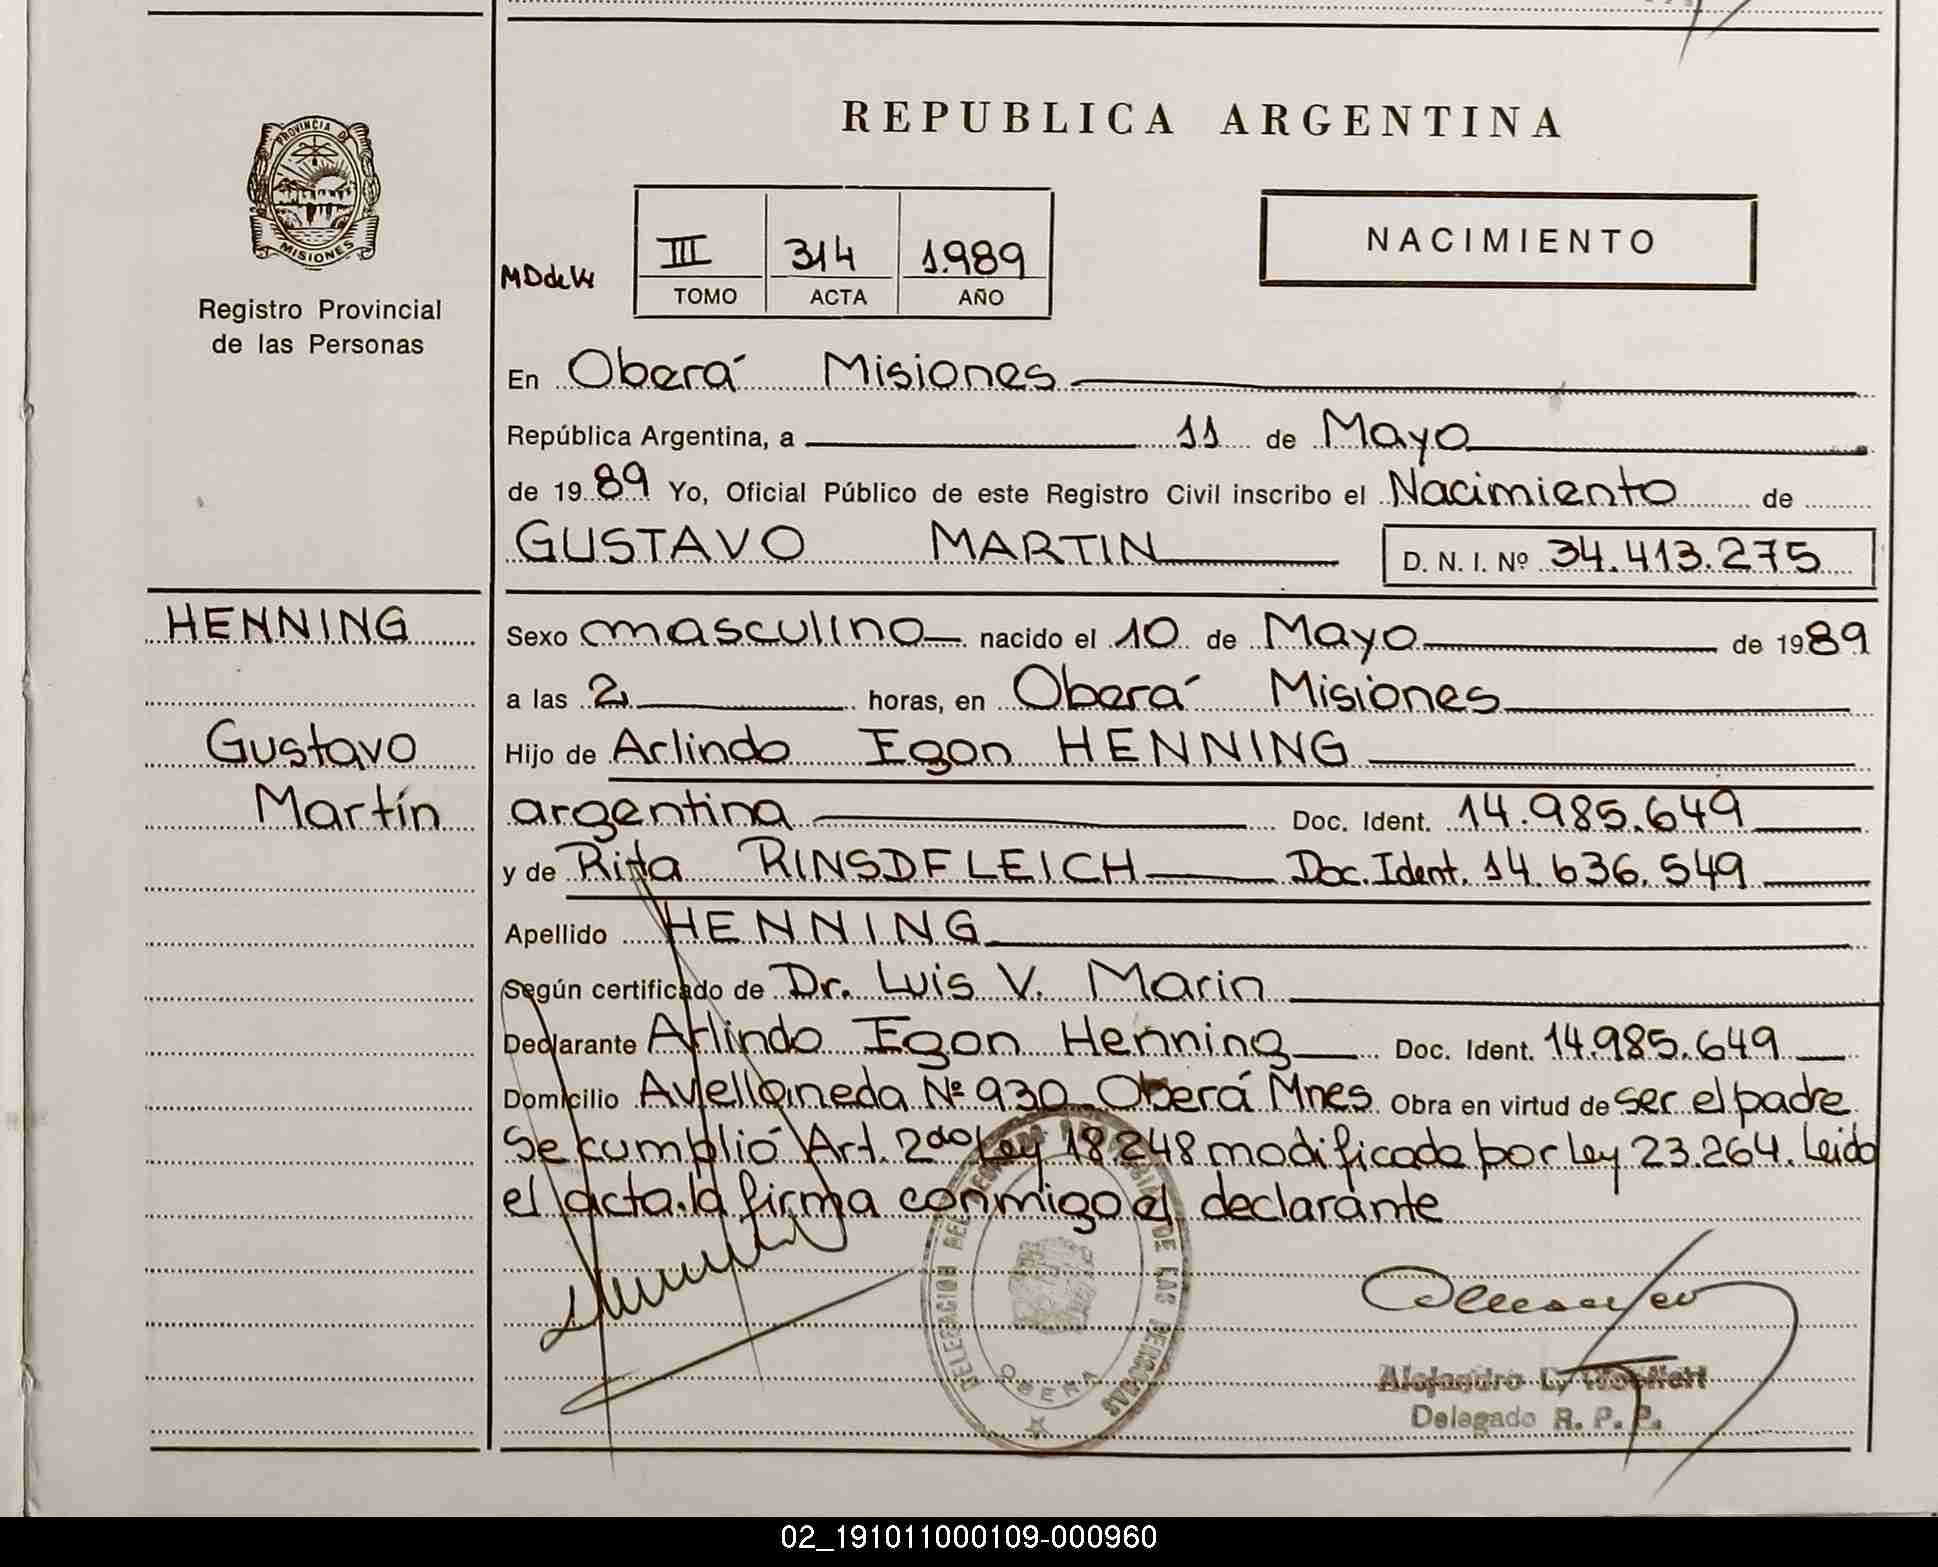 PROVINCIA DE
MISIONES
Registro Provincial
de las Personas
REPUBLICA ARGENTINA
NACIMIENTO
III 314 1.989
TOMO ACTA AÑO
En Oberá Misiones
República Argentina, a 11 de Mayo
de 1989 Yo, Oficial Público de este Registro Civil inscribo el Nacimiento de
GUSTAVO MARTIN D. N. I. Nº 34.413.275
HENNING
Gustavo
Martín
Sexo masculino nacido el 10 de Mayo de 1989
a las 2 horas, en Oberá Misiones
Hijo de Arlindo Egon HENNING
argentina Doc. Ident. 14.985.649
y de Rita RINSDFLEICH Doc. Ident. 14.636.549
Apellido HENNING
Según certificado de Dr. Luis V. Marin
Declarante Arlindo Egon Henning Doc. Ident. 14.985.649
Domicilio Avellaneda Nº 930 Oberá Mnes Obra en virtud de ser el padre
Se cumplió Art. 2do Ley 18.248 modificada por Ley 23.264. Leida
el acta, la firma conmigo el declarante
DELEGACION DEL REGISTRO PROVINCIAL DE LAS PERSONAS
OBERA
Alejandro L.
Delegado R. P. P.
02_191011000109-000960